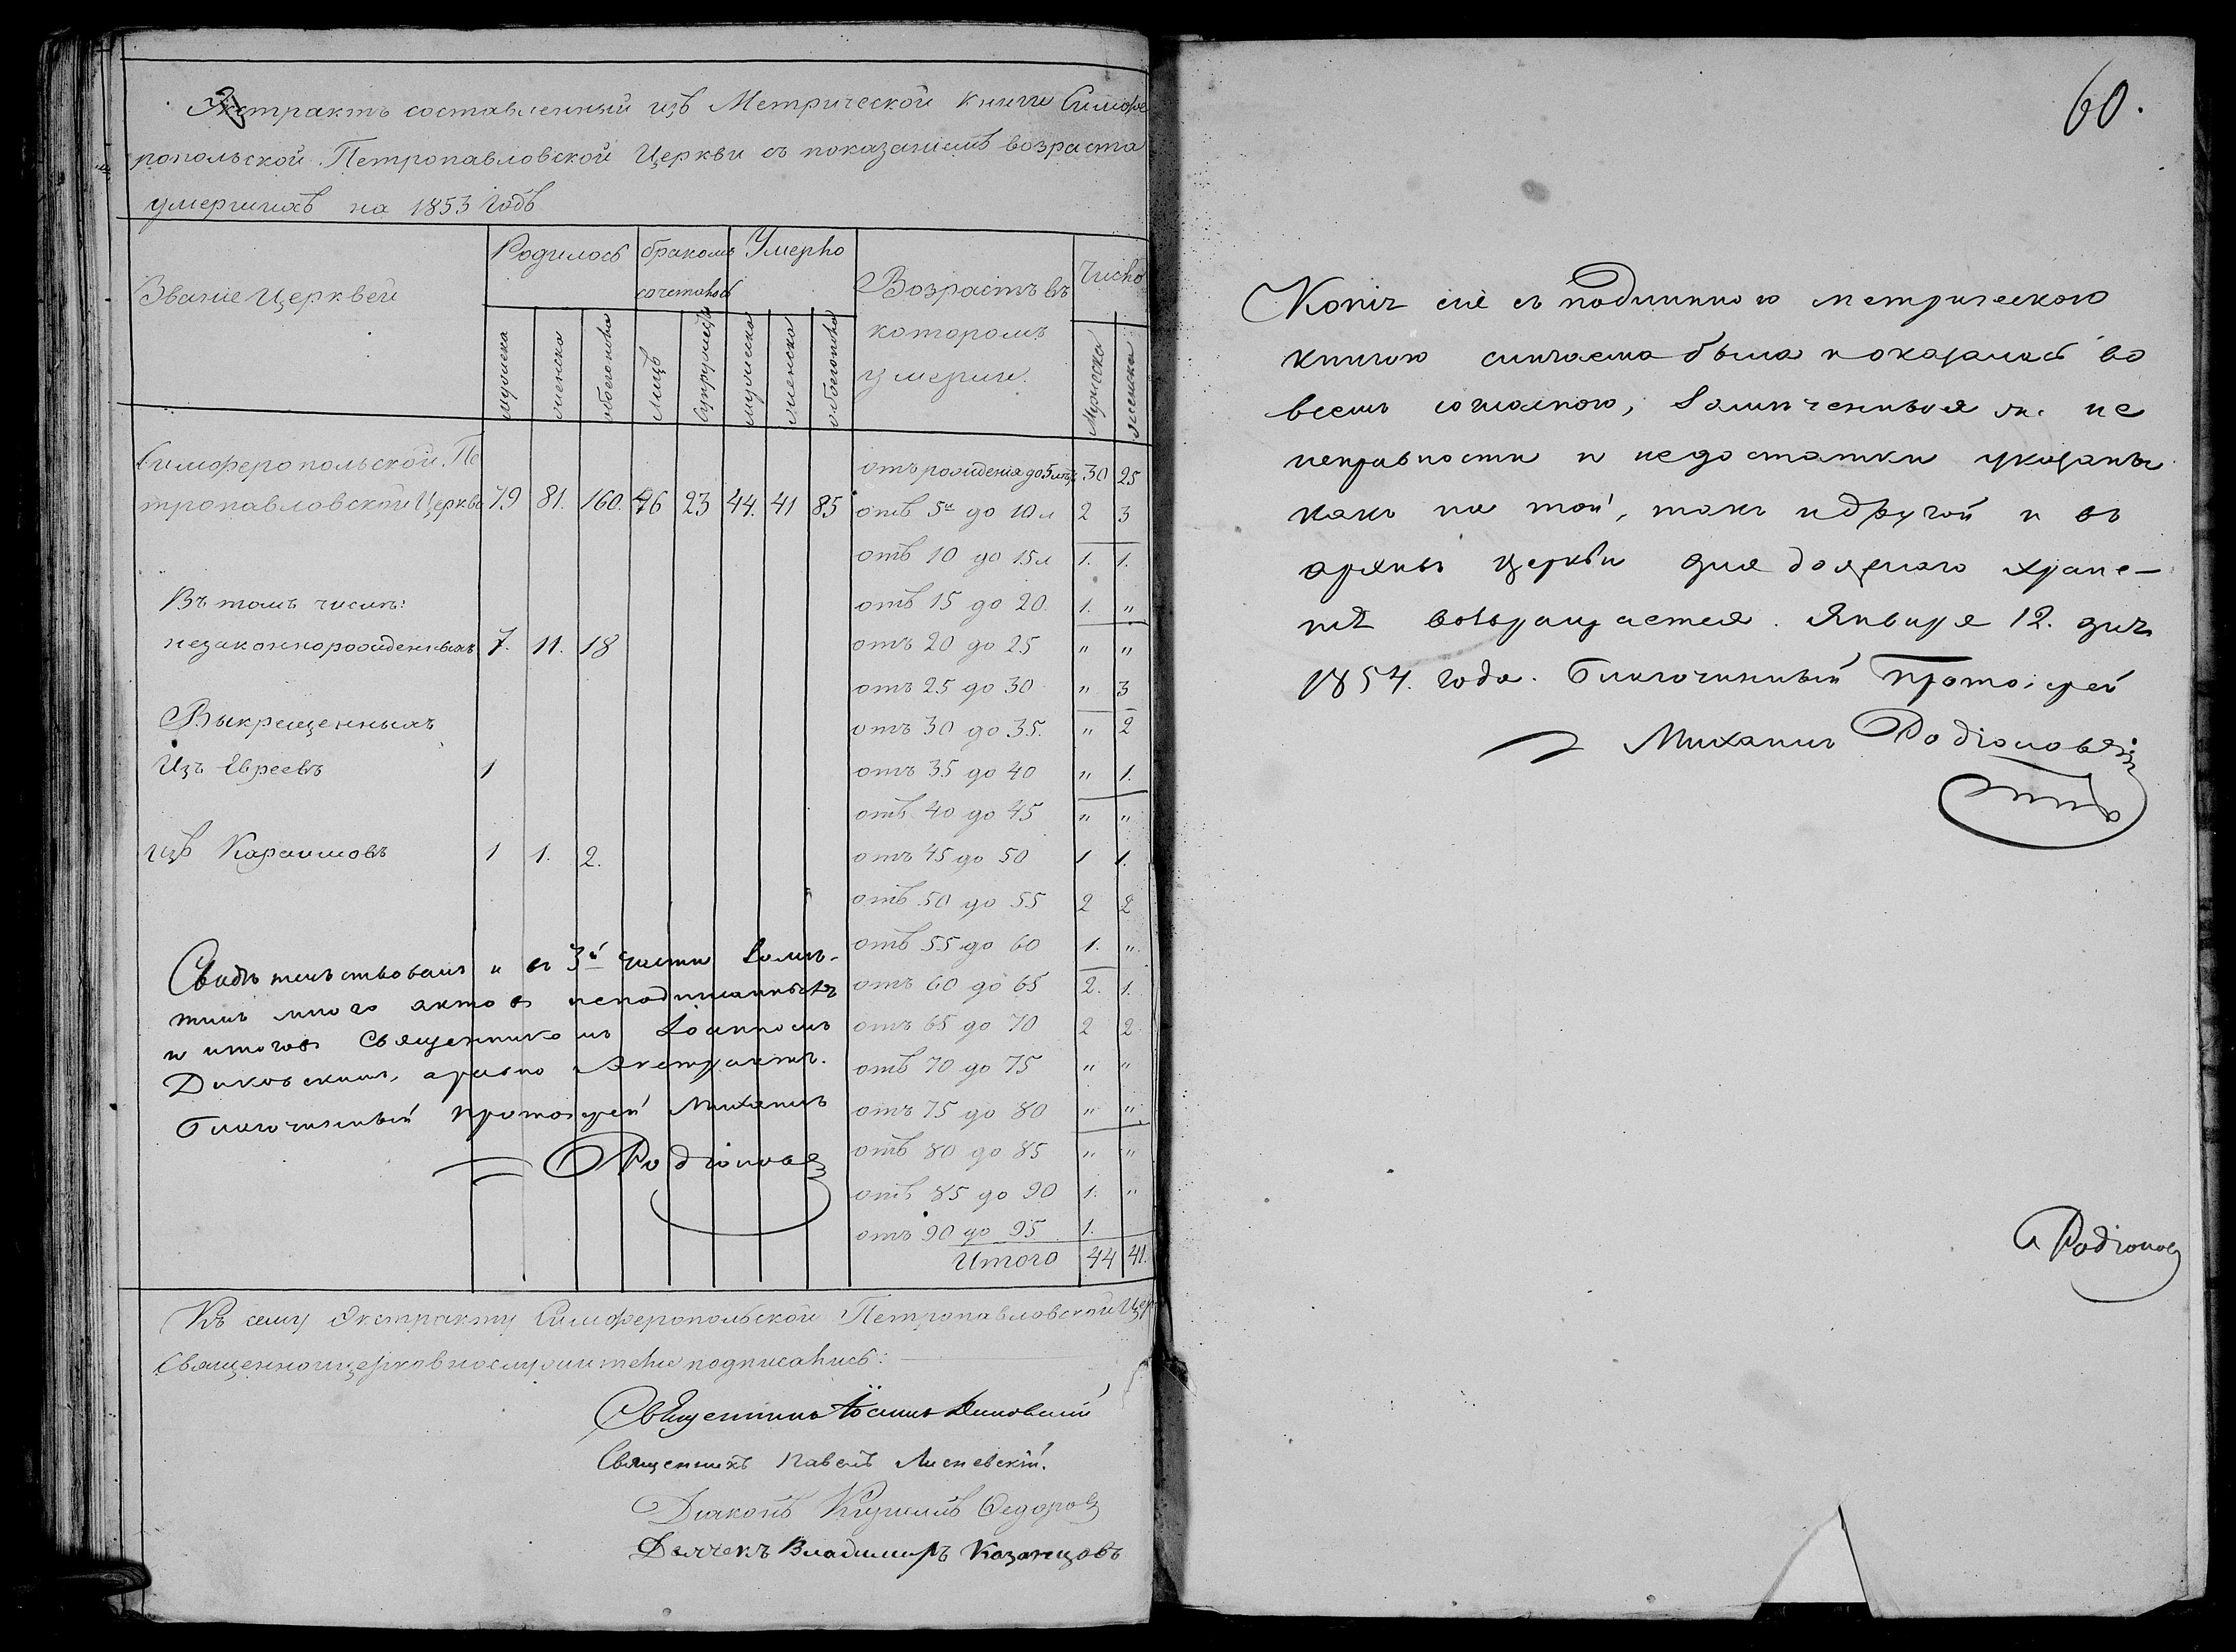 Экстрактъ составленный изъ Метрической книги Симфе
ропольской Петропавловской Церкви съ показаніемъ возраста
умершихъ на 1853 годъ
Званіе Церквей
Родилось
бракомъ
сочеталось
Умерло
Возрастъ въ
которомъ
умерли.
Число
мужеска
женска
обоего пола
Лицъ
Супружествъ
мужеска
женска
обоего пола
Мужеска
женска
Симферопольской Пе
тропавловской Церкви 79 81. 160. 46 23 44. 41 85
Въ томъ числѣ:
незаконнорожденныхъ 7. 11. 18
Выкрещенныхъ
Изъ Евреевъ 1
изъ Караимовъ 1 1. 2.
отъ рожденія до 5 лѣтъ 30 25
отъ 5и до 10 л 2 3
отъ 10 до 15 л 1. 1.
отъ 15 до 20. 1. "
отъ 20 до 25 " "
отъ 25 до 30 " 3
отъ 30 до 35. " 2
отъ 35 до 40 " 1.
отъ 40 до 45 " "
отъ 45 до 50 1 1.
отъ 50 до 55 2 2
отъ 55 до 60 1. "
отъ 60 до 65 2. 1.
отъ 65 до 70 2 2
отъ 70 до 75 " "
отъ 75 до 80 " "
отъ 80 до 85 " "
отъ 85 до 90 1. "
отъ 90 до 95 1.
Итого 44 41.
Свидѣтельствовалъ и въ 3й части замѣ-
тилъ много актовъ неподписанныхъ
и итоговъ Священникомъ Іоанномъ
Диковскимъ, а равно Экстрактъ.
Благочинный Протоіерей Михаилъ
Родіоновъ
Къ сему Экстракту Симферопольской Петропавловской Цер
Священноцерковнослужители подписались:
Священникъ Іоаннъ Диковскій
Священникъ Павелъ Лисневскій.
Діаконъ Кириллъ Федоровъ
Дьячекъ Владимиръ Казанцовъ
60.
Копія сіе съ подлинною метрическою
книгою сличаема была и оказалась во
всемъ согласною, Замѣченныя же не
исправности и недостатки указаны
какъ на той, такъ и другой и въ
архивъ церкви для должнаго хране-
нія возвращается. Января 12. дня
1854. года. Благочинный Протоіерей
Михаилъ Родіоновъ
Родіоновъ